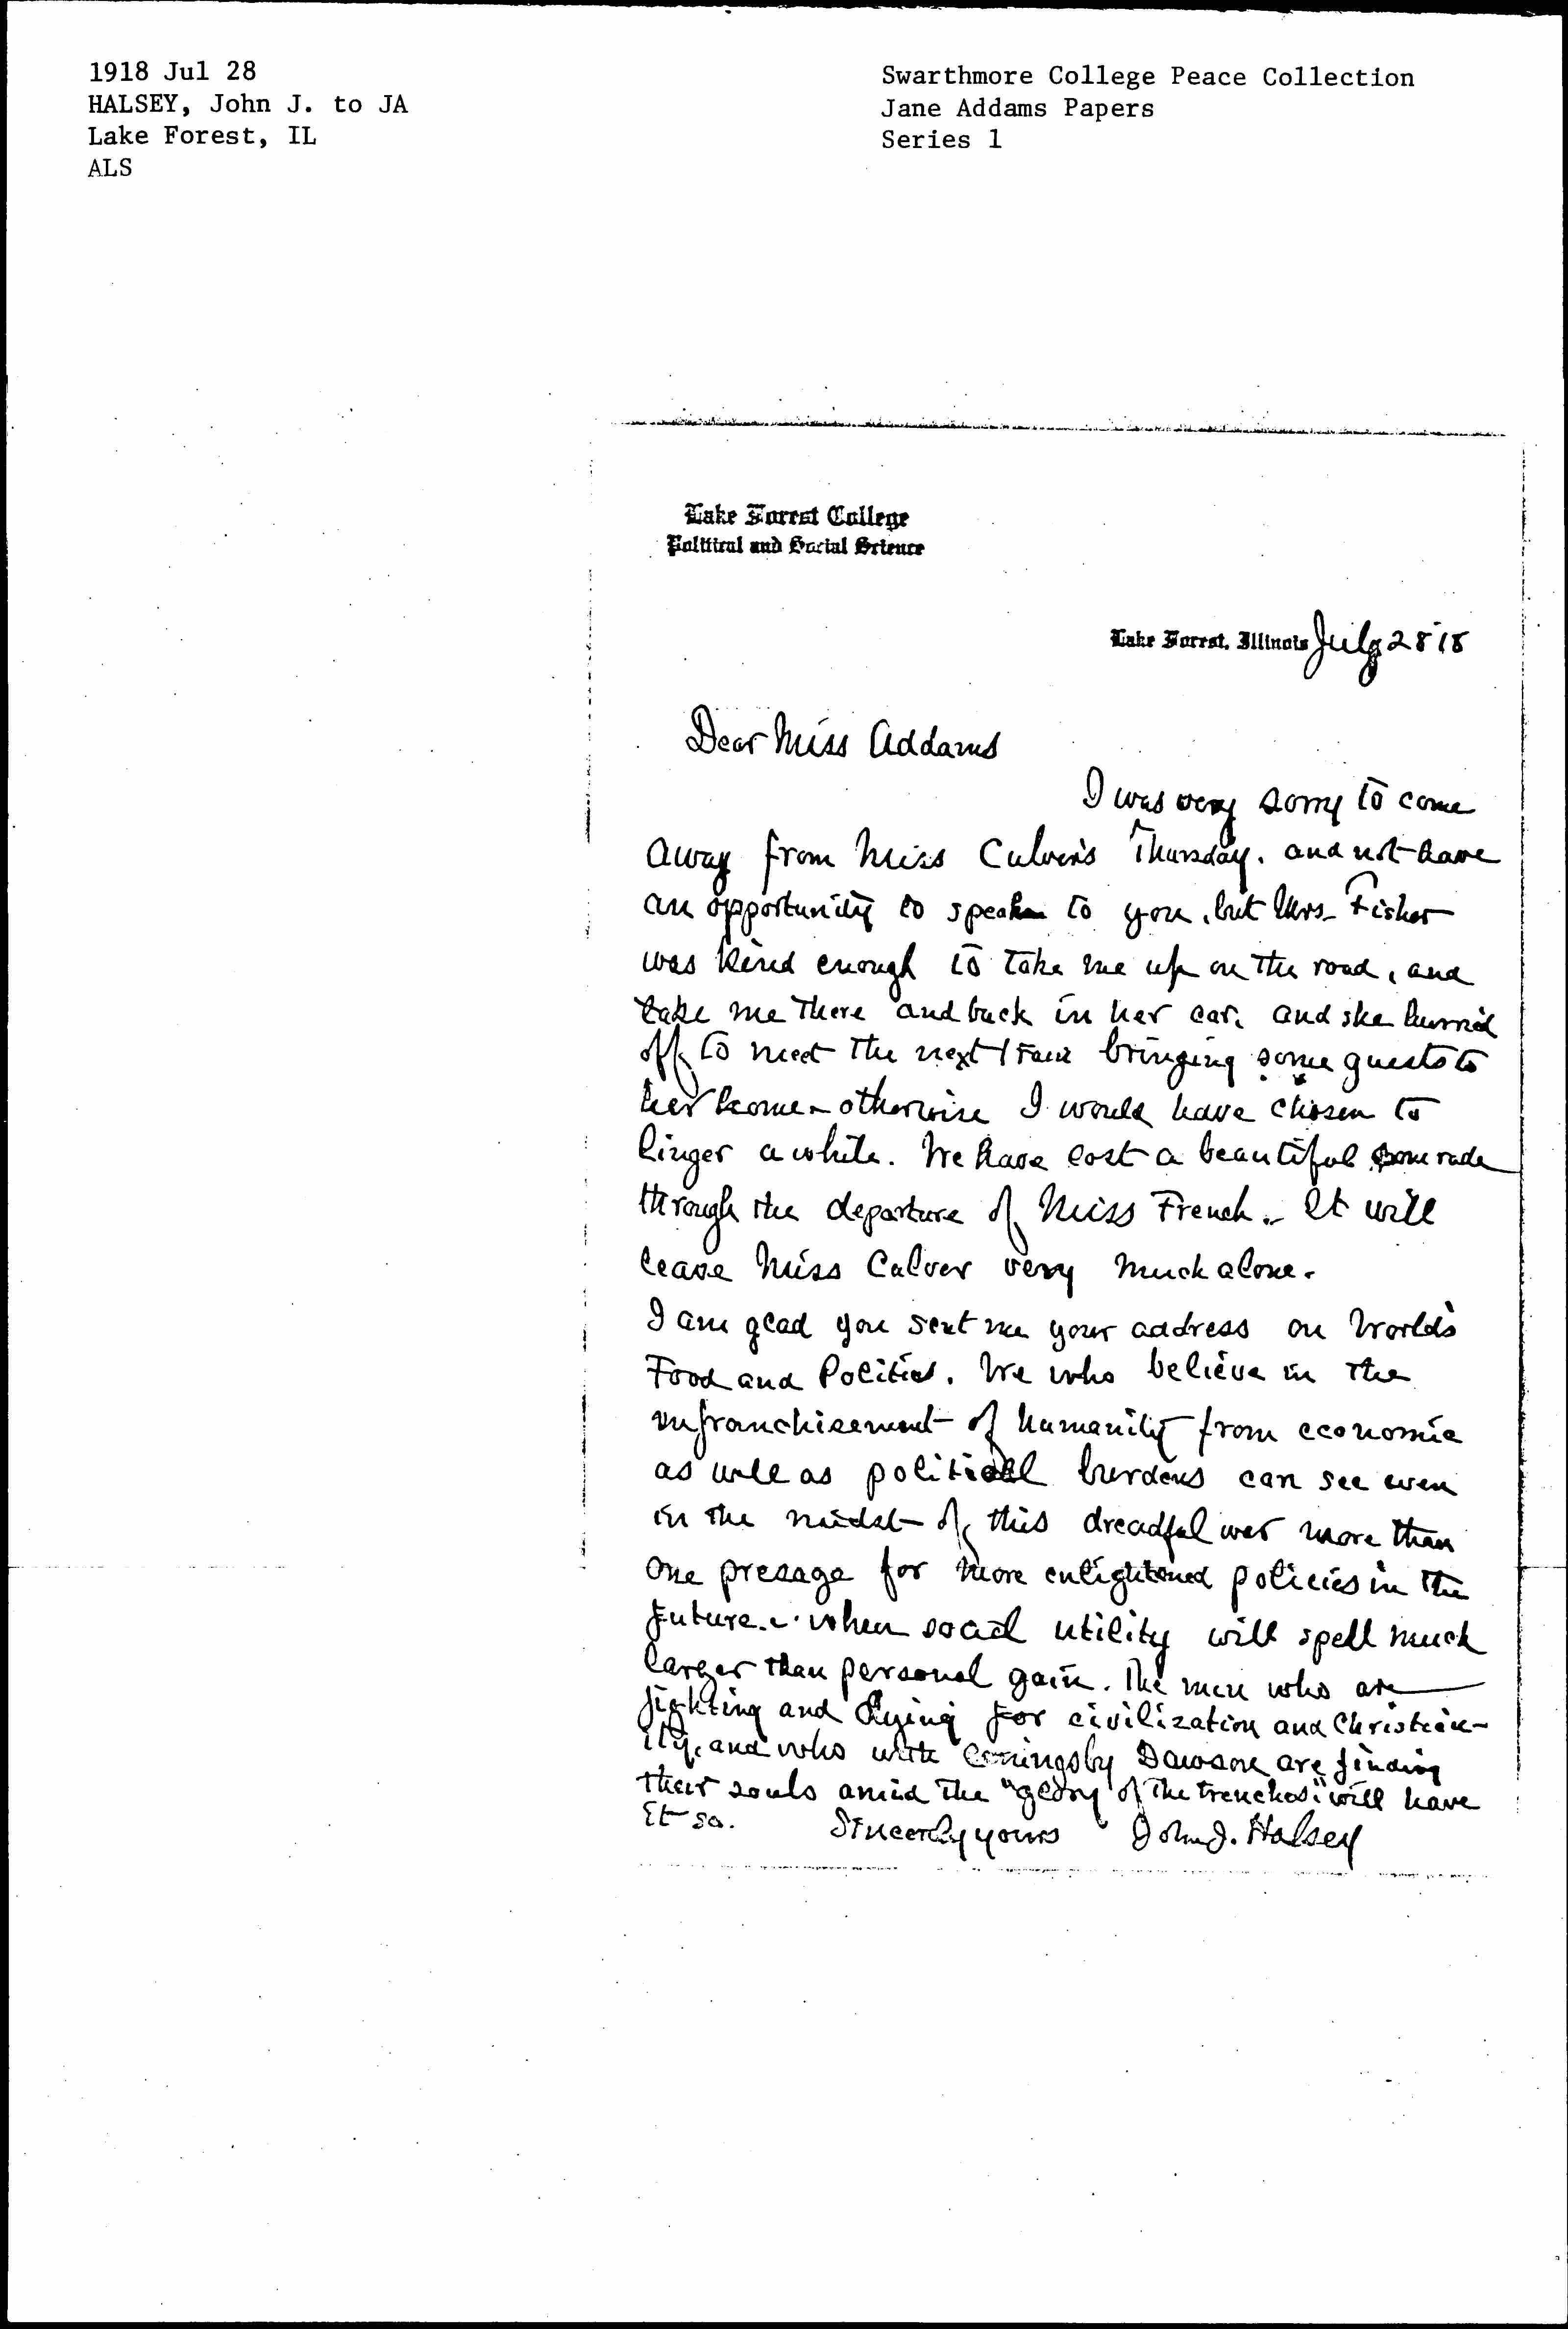 1918 Jul 28
HALSEY, John J. to JA
Lake Forest, IL
ALS
Swarthmore College Peace Collection
Jane Addams Papers
Series 1
Lake Forest College
Political and Social Science
Lake Forest, Illinois July 28 '18
Dear Miss Addams
I was very sorry to come
away from Miss Culver's Thursday, and not have
an opportunity to speak to you, but Mrs. Fisher
was kind enough to take me up on the road, and
take me there and back in her car, and she hurried
off to meet the next train bringing some guests to
her home - otherwise I would have chosen to
linger a while. We have lost a beautiful comrade
through the departure of Miss French. It will
leave Miss Culver very much alone.
I am glad you sent me your address on World's
Food and Politics. We who believe in the
enfranchisement of humanity from economic
as well as political burdens can see even
in the midst of this dreadful war more than
one presage for more enlightened policies in the
future - when social utility will spell much
larger than personal gain. The men who are
fighting and dying for civilization and Christian-
ity, and who with Coningsby Dawson are finding
their souls amid the "glory of the trenches" will have
it so. Sincerely yours John J. Halsey